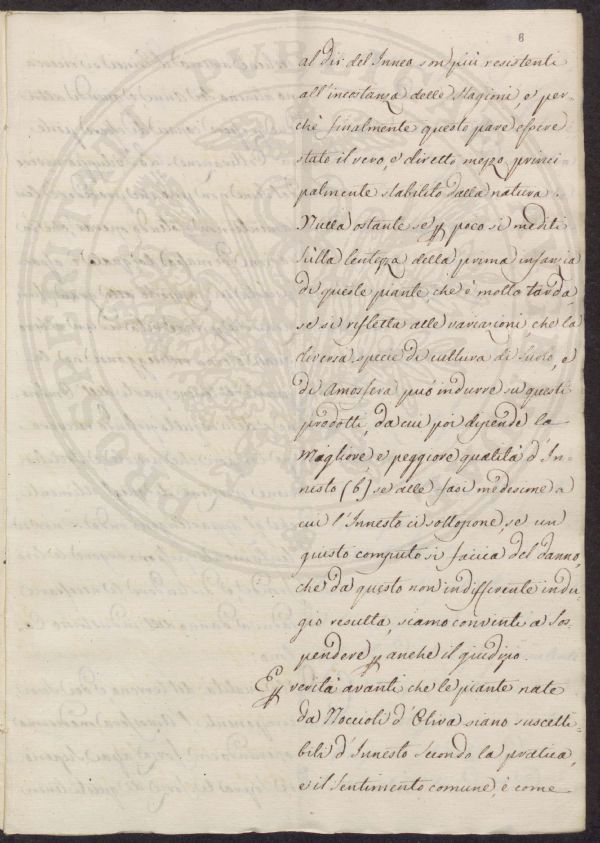 6
al dir del Inneo son più resistenti
all'incostanza delle Stagioni e per-
chè finalmente questo pare essere
stato il vero, e diretto mezzo princi
palmente stabilito dalla natura.
Nulla ostante se poco si mediti
sulla lentezza della prima infanzia
di queste piante, che è molto tarda
se si rifletta alle variazioni, che la
diversa specie di cultura di Suolo, e
di Amosfera può indurre su questi
prodotti, da cui poi dipende la
Migliore e peggiore qualità d'In-
nesto (b) se alle fasi medesime a
cui l'Innesto ci sottopone, se un
giusto computo si faccia del danno,
che da questo non indifferente indu-
gio resulta, siamo convinti a sos
pendere anche il giudizio.
verità avanti che le piante nate
da Noccioli d'Oliva siano suscetti-
bili d'Innesto secondo la pratica,
e il sentimento comune, è come
PUBLIC
PROSPERITATI